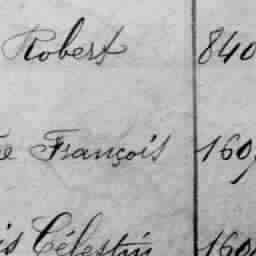 Robert 840
François 160
Célestin 160